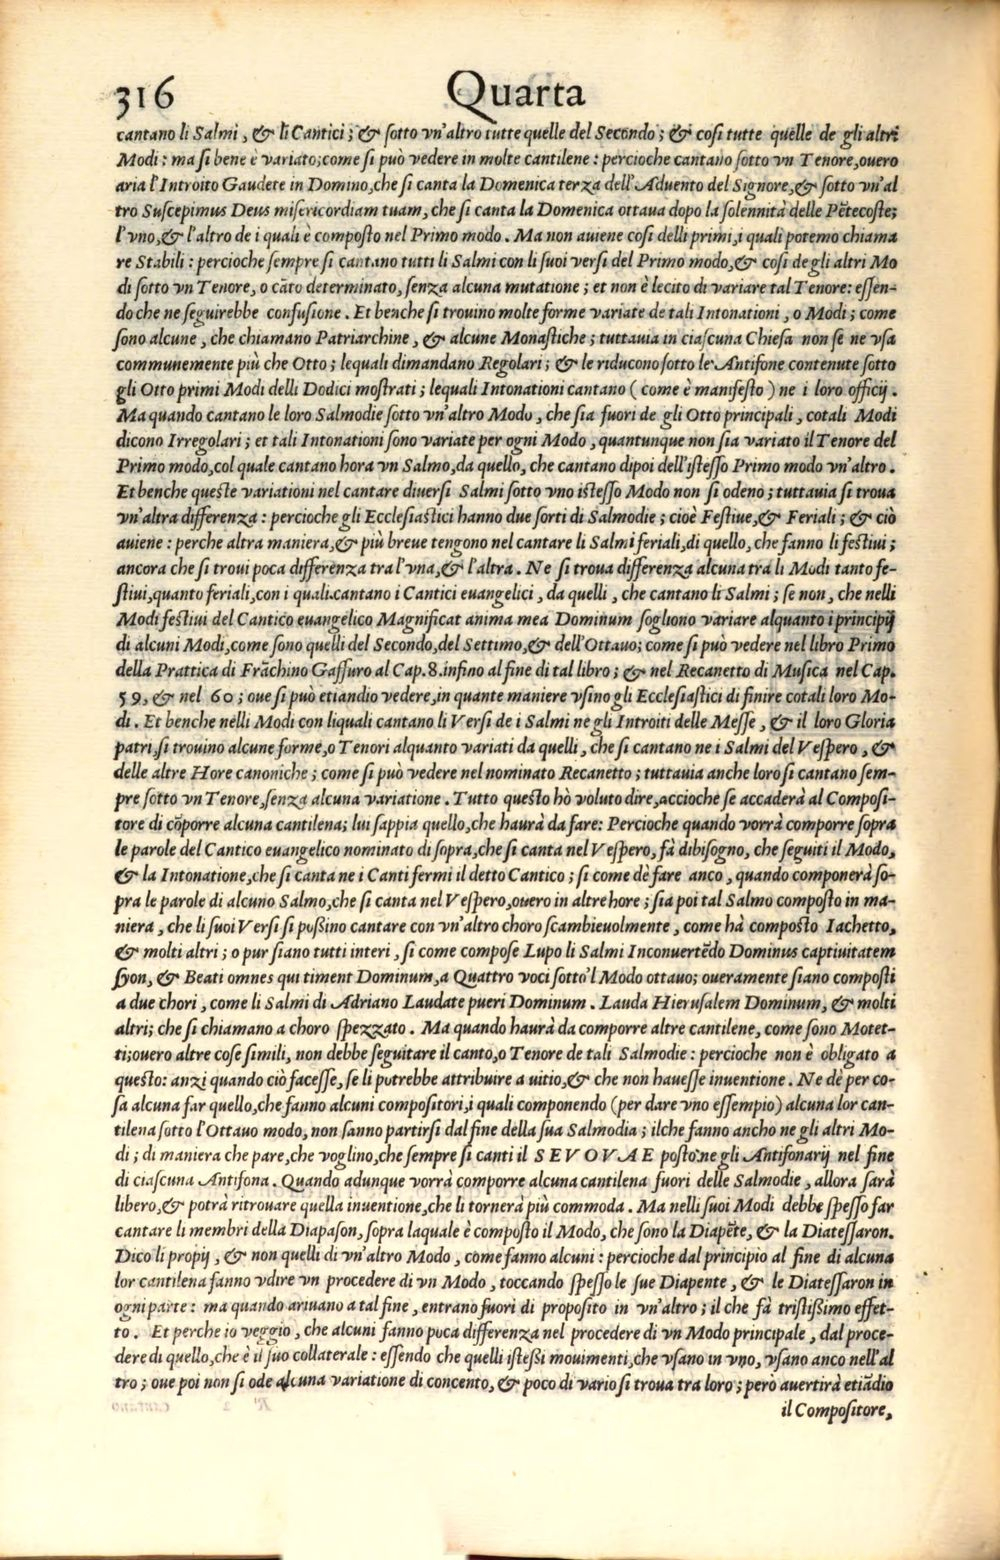 316 Quarta
cantano li Salmi, & li Cantici; & ſotto vn'altro tutte quelle del Secondo; & coſi tutte quelle de gli altri
Modi: ma ſi bene è variato; come ſi può vedere in molte cantilene: percioche cantano ſotto vn Tenore, ouero
aria l'Introito Gaudete in Domino, che ſi canta la Domenica terza dell'Aduento del Signore, & ſotto vn'al
tro Suſcepimus Deus miſericordiam tuam, che ſi canta la Domenica ottaua dopo la ſolennità delle Pẽtecoſte;
l'vno, & l'altro de i quali è compoſto nel Primo modo. Ma non auiene coſi delli primi, i quali potemo chiama
re Stabili: percioche ſempre ſi cantano tutti li Salmi con li ſuoi verſi del Primo modo, & coſi de gli altri Mo
di ſotto vn Tenore, o cãto determinato, ſenza alcuna mutatione; et non è lecito di variare tal Tenore: eſſen-
do che ne ſeguirebbe confuſione. Et benche ſi trouino molte forme variate de tali Intonationi, o Modi; come
ſono alcune, che chiamano Patriarchine, & alcune Monaſtiche; tuttauia in ciaſcuna Chieſa non ſe ne vſa
communemente più che Otto; lequali dimandano Regolari; & le riducono ſotto le Antifone contenute ſotto
gli Otto primi Modi delli Dodici moſtrati; lequali Intonationi cantano (come è manifeſto) ne i loro officij.
Ma quando cantano le loro Salmodie ſotto vn'altro Modo, che ſia fuori de gli Otto principali, cotali Modi
dicono Irregolari; et tali Intonationi ſono variate per ogni Modo, quantunque non ſia variato il Tenore del
Primo modo, col quale cantano hora vn Salmo, da quello, che cantano dipoi dell'iſteſſo Primo modo vn'altro.
Et benche queſte variationi nel cantare diuerſi Salmi ſotto vno iſteſſo Modo non ſi odeno; tuttauia ſi troua
vn'altra differenza: percioche gli Eccleſiaſtici hanno due ſorti di Salmodie; cioè Feſtiue, & Feriali; & ciò
auiene: perche altra maniera, & più breue tengono nel cantare li Salmi feriali, di quello, che fanno li feſtiui;
ancora che ſi troui poca differenza tra l'vna, & l'altra. Ne ſi troua differenza alcuna tra li Modi tanto fe-
ſtiui, quanto feriali, con i quali cantano i Cantici euangelici, da quelli, che cantano li Salmi; ſe non, che nelli
Modi feſtiui del Cantico euangelico Magnificat anima mea Dominum ſogliono variare alquanto i principij
di alcuni Modi, come ſono quelli del Secondo, del Settimo, & dell'Ottauo; come ſi può vedere nel libro Primo
della Prattica di Frãchino Gaffuro al Cap. 8. inſino al fine di tal libro; & nel Recanetto di Muſica nel Cap.
59, & nel 60; oue ſi può etiandio vedere, in quante maniere vſino gli Eccleſiaſtici di finire cotali loro Mo-
di. Et benche nelli Modi con liquali cantano li Verſi de i Salmi ne gli Introiti delle Meſſe, & il loro Gloria
patri, ſi trouino alcune forme, o Tenori alquanto variati da quelli, che ſi cantano ne i Salmi del Veſpero, &
delle altre Hore canoniche; come ſi può vedere nel nominato Recanetto; tuttauia anche loro ſi cantano ſem-
pre ſotto vn Tenore, ſenza alcuna variatione. Tutto queſto hò voluto dire, accioche ſe accaderà al Compoſi-
tore di cõporre alcuna cantilena; lui ſappia quello, che haurà da fare: Percioche quando vorrà comporre ſopra
le parole del Cantico euangelico nominato di ſopra, che ſi canta nel Veſpero, fà dibiſogno, che ſeguiti il Modo,
& la Intonatione, che ſi canta ne i Canti fermi il detto Cantico; ſi come dè fare anco, quando componerà ſo-
pra le parole di alcuno Salmo, che ſi canta nel Veſpero, ouero in altre hore; ſia poi tal Salmo compoſto in ma-
niera, che li ſuoi Verſi ſi poßino cantare con vn'altro choro ſcambieuolmente, come hà compoſto Iachetto,
& molti altri; o pur ſiano tutti interi, ſi come compoſe Lupo li Salmi Inconuertẽdo Dominus captiuitatem
ſyon, & Beati omnes qui timent Dominum, a Quattro voci ſotto'l Modo ottauo; oueramente ſiano compoſti
a due chori, come li Salmi di Adriano Laudate pueri Dominum. Lauda Hieruſalem Dominum, & molti
altri; che ſi chiamano a choro ſpezzato. Ma quando haurà da comporre altre cantilene, come ſono Motet-
ti; ouero altre coſe ſimili, non debbe ſeguitare il canto, o Tenore de tali Salmodie: percioche non è obligato a
queſto: anzi quando ciò faceſſe, ſe li potrebbe attribuire a vitio, & che non haueſſe inuentione. Ne dè per co-
ſa alcuna far quello, che fanno alcuni compoſitori, i quali componendo (per dare vno eſſempio) alcuna lor can-
tilena ſotto l'Ottauo modo, non ſanno partirſi dal fine della ſua Salmodia; ilche fanno ancho ne gli altri Mo-
di; di maniera che pare, che voglino, che ſempre ſi canti il SEVOVAE poſto ne gli Antifonarij nel fine
di ciaſcuna Antifona. Quando adunque vorrà comporre alcuna cantilena fuori delle Salmodie, allora ſarà
libero, & potrà ritrouare quella inuentione, che li tornerà più commoda. Ma nelli ſuoi Modi debbe ſpeſſo far
cantare li membri della Diapaſon, ſopra laquale è compoſto il Modo, che ſono la Diapẽte, & la Diateſſaron.
Dico li propij, & non quelli di vn'altro Modo, come fanno alcuni: percioche dal principio al fine di alcuna
lor cantilena fanno vdire vn procedere di vn Modo, toccando ſpeſſo le ſue Diapente, & le Diateſſaron in
ogni parte: ma quando ariuano a tal fine, entrano fuori di propoſito in vn'altro; il che fà triſtißimo effet-
to. Et perche io veggio, che alcuni fanno poca differenza nel procedere di vn Modo principale, dal proce-
dere di quello, che è il ſuo collaterale: eſſendo che quelli iſteßi mouimenti, che vſano in vno, vſano anco nell'al
tro; oue poi non ſi ode alcuna variatione di concento, & poco di vario ſi troua tra loro; però auertirà etiãdio
il Compoſitore,